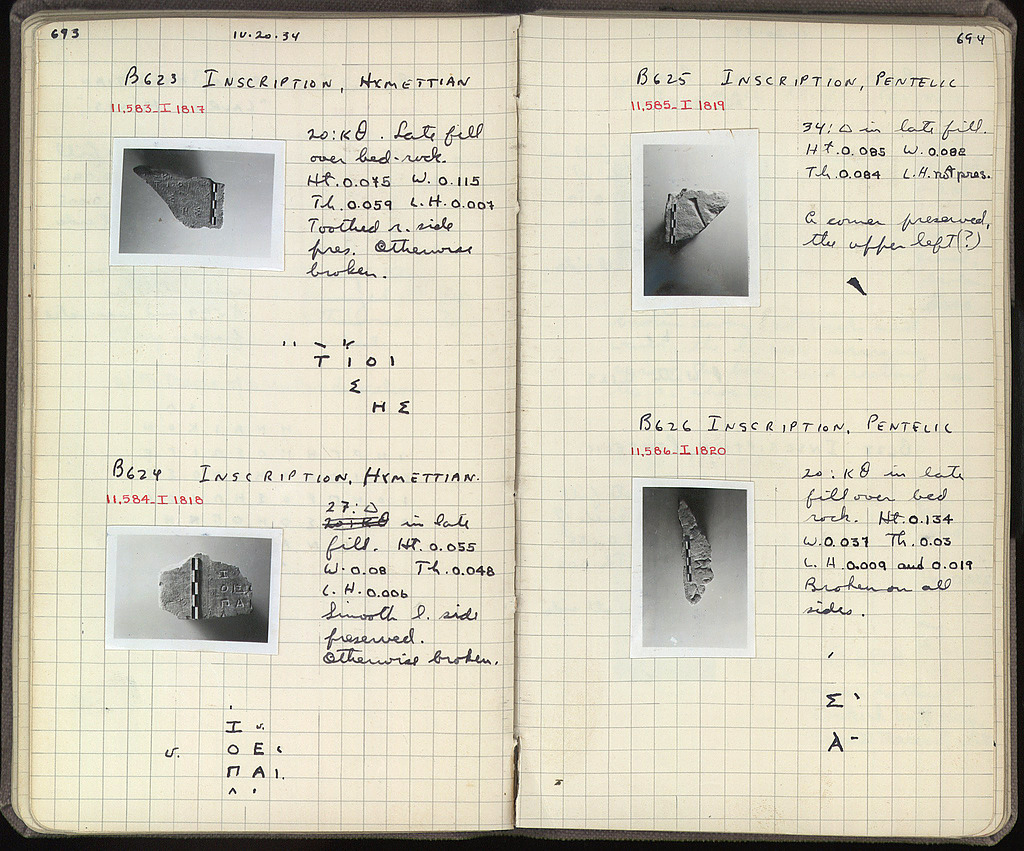 693
IV.20.34
B623 INSCRIPTION, HYMETTIAN
11,583_I 1817
20:ΚΘ. Late fill
over bed-rock.
Ht. 0.075 W. 0.115
Th. 0.059 L.H. 0.007
Toothed r. side
pres. Otherwise
broken.
Τ Ι Ο Ι
Σ
Η Σ
B624 INSCRIPTION, HYMETTIAN.
11,584_I 1818
27:Δ
20:ΚΘ in late
fill. Ht. 0.055
W. 0.08 Th. 0.048
L.H. 0.006
Smooth l. side
preserved.
Otherwise broken.
Ι υ.
υ. Ο Ε
Π Α Ι.
694
B625 INSCRIPTION, PENTELIC
11,585_I 1819
34:Δ in late fill.
Ht. 0.085 W. 0.082
Th. 0.084 L.H. not pres.
A corner preserved,
the upper left(?)
B626 INSCRIPTION, PENTELIC
11,586_I 1820
20:ΚΘ in late
fill over bed
rock. Ht. 0.134
W. 0.037 Th. 0.03
L.H. 0.009 and 0.019
Broken on all
sides.
Σ
Α